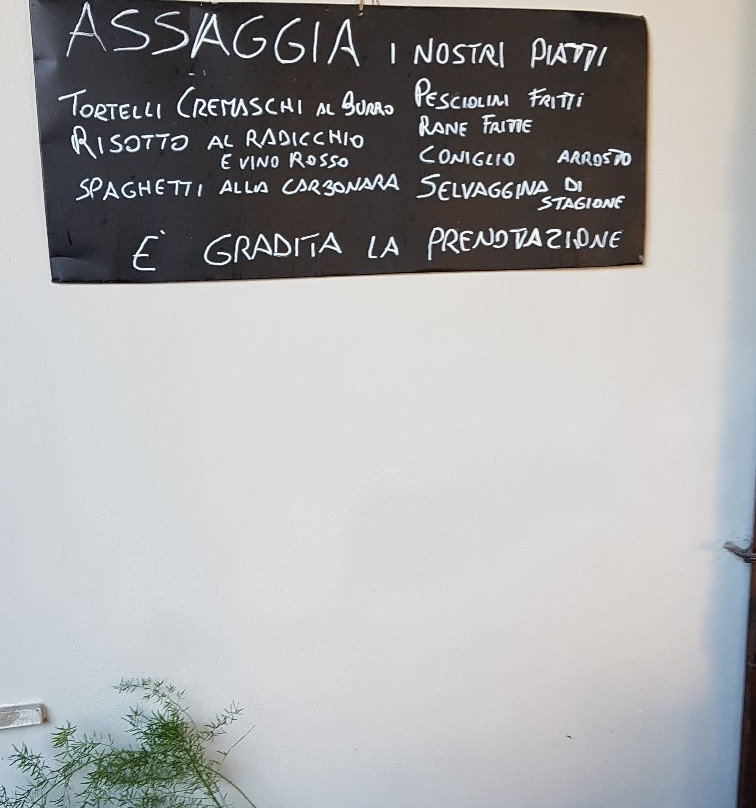 ASSAGGIA I NOSTRI PIATTI
TORTELLI CREMASCHI AL BURRO
RISOTTO AL RADICCHIO
E VINO ROSSO
SPAGHETTI ALLA CARBONARA
PESCIOLINI FRITTI
RANE FRITTE
CONIGLIO ARROSTO
SELVAGGINA DI
STAGIONE
E' GRADITA LA PRENOTAZIONE